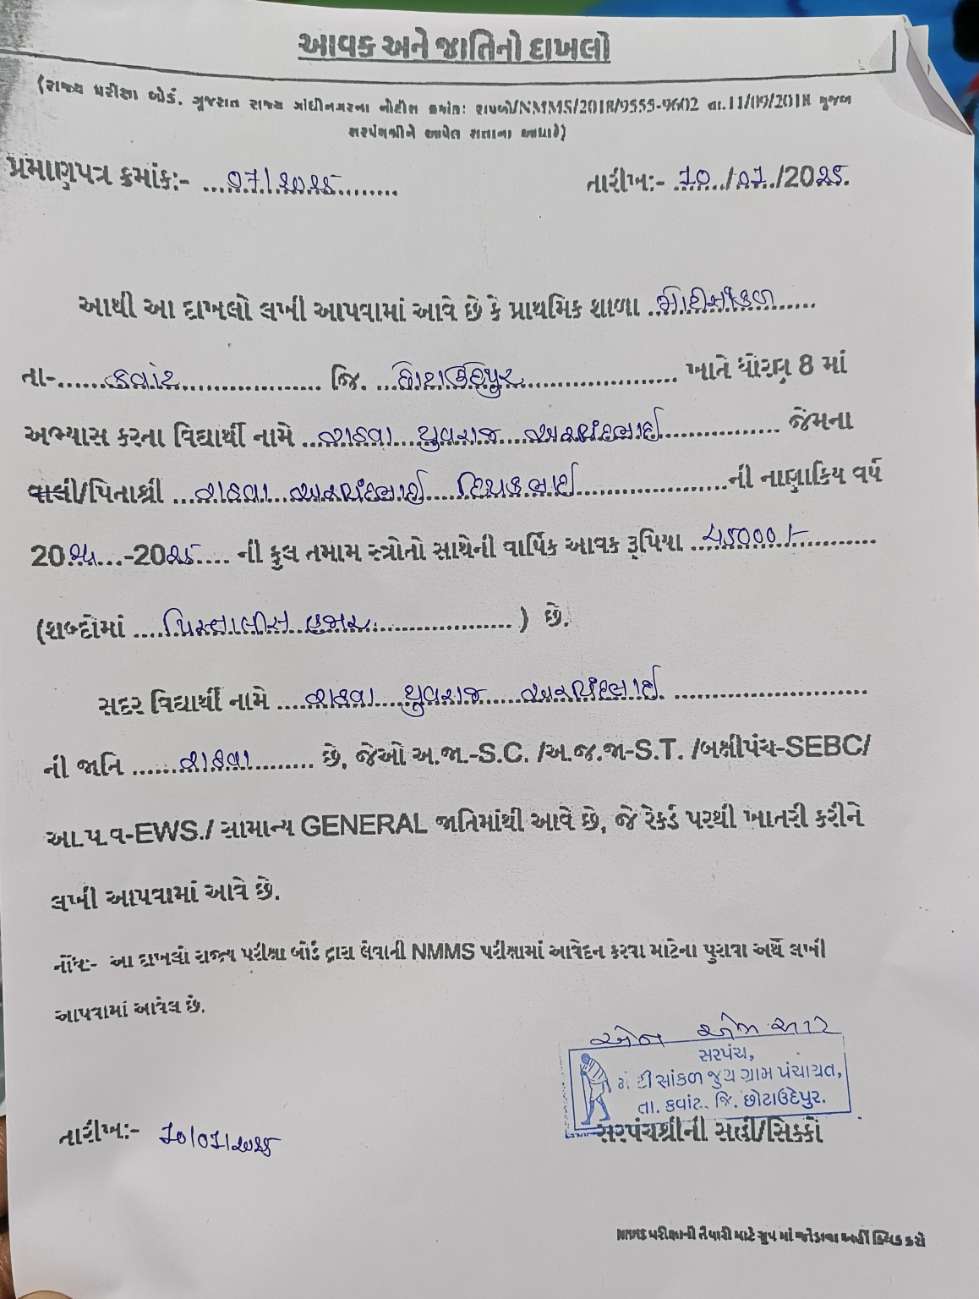 આવક અને જાતિનો દાખલો
(રાજ્ય પરીક્ષા બોર્ડ, ગુજરાત રાજ્ય ગાંધીનગરના નોટીસ ક્રમાંક: રાપબો/NMMS/2018/9555-9602 તા.11/09/2018 મુજબ
સરપંચશ્રીને આપેલ સત્તાના આધારે)
પ્રમાણપત્ર ક્રમાંક:- ...07/2025.......
તારીખ:- .10../07./2025.
આથી આ દાખલો લખી આપવામાં આવે છે કે પ્રાથમિક શાળા ..મોટીસાંકળ......
તા-......કવાંટ................ જિ. ...છોટાઉદેપુર................... ખાતે ધોરણ 8 માં
અભ્યાસ કરતા વિદ્યાર્થી નામે ..રાઠવા...યુવરાજ...અરવિંદભાઈ............... જેમના
વાલી/પિતાશ્રી ...રાઠવા...અરવિંદભાઈ.....દિપકભાઈ..................ની નાણાકિય વર્ષ
2024...-2025.... ની કુલ તમામ સ્ત્રોતો સાથેની વાર્ષિક આવક રૂપિયા ...45000/-..........
(શબ્દોમાં ....પિસ્તાલીસ હજાર................) છે.
સદર વિદ્યાર્થી નામે ....રાઠવા....યુવરાજ....અરવિંદભાઈ......................
ની જાતિ ......રાઠવા........ છે, જેઓ અ.જા.-S.C. /અ.જ.જા-S.T. /બક્ષીપંચ-SEBC/
આ.પ.વ-EWS./ સામાન્ય GENERAL જાતિમાંથી આવે છે, જે રેકર્ડ પરથી ખાતરી કરીને
લખી આપવામાં આવે છે.
નોંધ:- આ દાખલો રાજ્ય પરીક્ષા બોર્ડ દ્વારા લેવાની NMMS પરીક્ષામાં આવેદન કરવા માટેના પુરાવા અર્થે લખી
આપવામાં આવેલ છે.
એન એમ આર
સરપંચ,
ટીસાંકળ જુથ ગ્રામ પંચાયત,
તા. કવાંટ. જિ. છોટાઉદેપુર.
સરપંચશ્રીની સહી/સિક્કો
તારીખ:- 10/07/2025
NMMS પરીક્ષાની તૈયારી માટે ગ્રુપ માં જોડાવા અહીં ક્લિક કરો